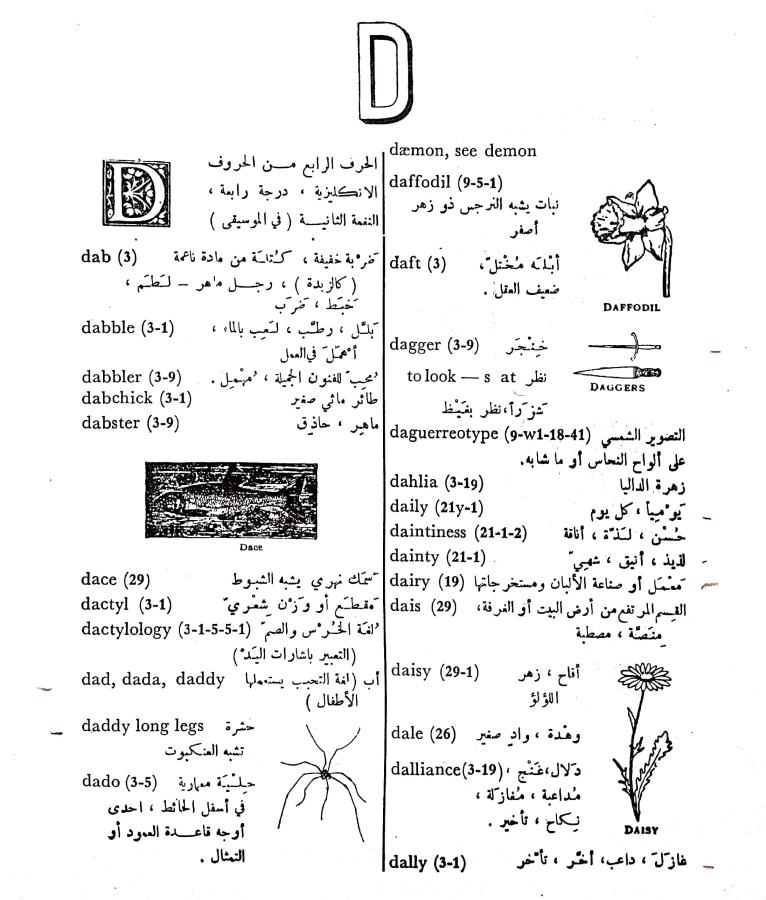 D
D
الحرف الرابع من الحروف
الانكليزية ، درجة رابعة ،
النغمة الثانية ( في الموسيقى )
dab (3) ضَرْبة خفيفة ، كُتلَة من مادة ناعمة
( كالزبدة ) ، رجل ماهر – لَطَم ،
خَبَط ، ضَرَب
dabble (3-1) بَلَّل ، رطَّب ، لَعِب بالماء ،
أهمَلَ في العمل
dabbler (3-9) مُحِبّ للفنون الجميلة ، مُهْمِل .
dabchick (3-1) طائر مائي صغير
dabster (3-9) ماهِر ، حاذِق
Dace
dace (29) سَمَك نهري يشبه الشبوط
dactyl (3-1) مَقطَع أو وَزْن شِعْريّ
dactylology (3-1-5-5-1) لُغَة الخُرْس والصمّ
(التعبير باشارات اليَد)
dad, dada, daddy أب (لغة التحبب يستعملها
الأطفال )
daddy long legs حشرة
تشبه العنكبوت
dado (3-5) حِلْيَة معمارية
في أسفل الحائط ، احدى
أوجه قاعدة العمود أو
التمثال .
dæmon, see demon
daffodil (9-5-1)
نبات يشبه النرجس ذو زهر
أصفر
DAFFODIL
daft (3) أبْلَه مُخْتلّ،
ضعيف العقل .
dagger (3-9) خِنْجَر
to look — s at نظر
شَزْراً، نظر بغَيْظ
DAGGERS
daguerreotype (9-w1-18-41) التصوير الشمسي
على ألواح النحاس أو ما شابه.
dahlia (3-19) زهرة الداليا
daily (21y-1) يَوْمِياً ، كل يوم
daintiness (21-1-2) حُسْن ، لَذّة ، أناقة
dainty (21-1) لذيذ ، أنيق ، شهيّ
dairy (19) مَعْمَل أو صناعة الألبان ومستخرجاتها
dais (29) القسم المرتفع من أرض البيت أو الغرفة،
مِنَصَّة ، مصطبة
daisy (29-1) أقاح ، زهر
اللؤلؤ
dale (26) وهْدة ، وادٍ صغير
dalliance(3-19) دَلال،غَنْج ،
مُداعبة ، مُغازلة ،
نِكاح ، تأخير .
DAISY
dally (3-1) غازَلَ ، داعب، أخّر ، تأخّر